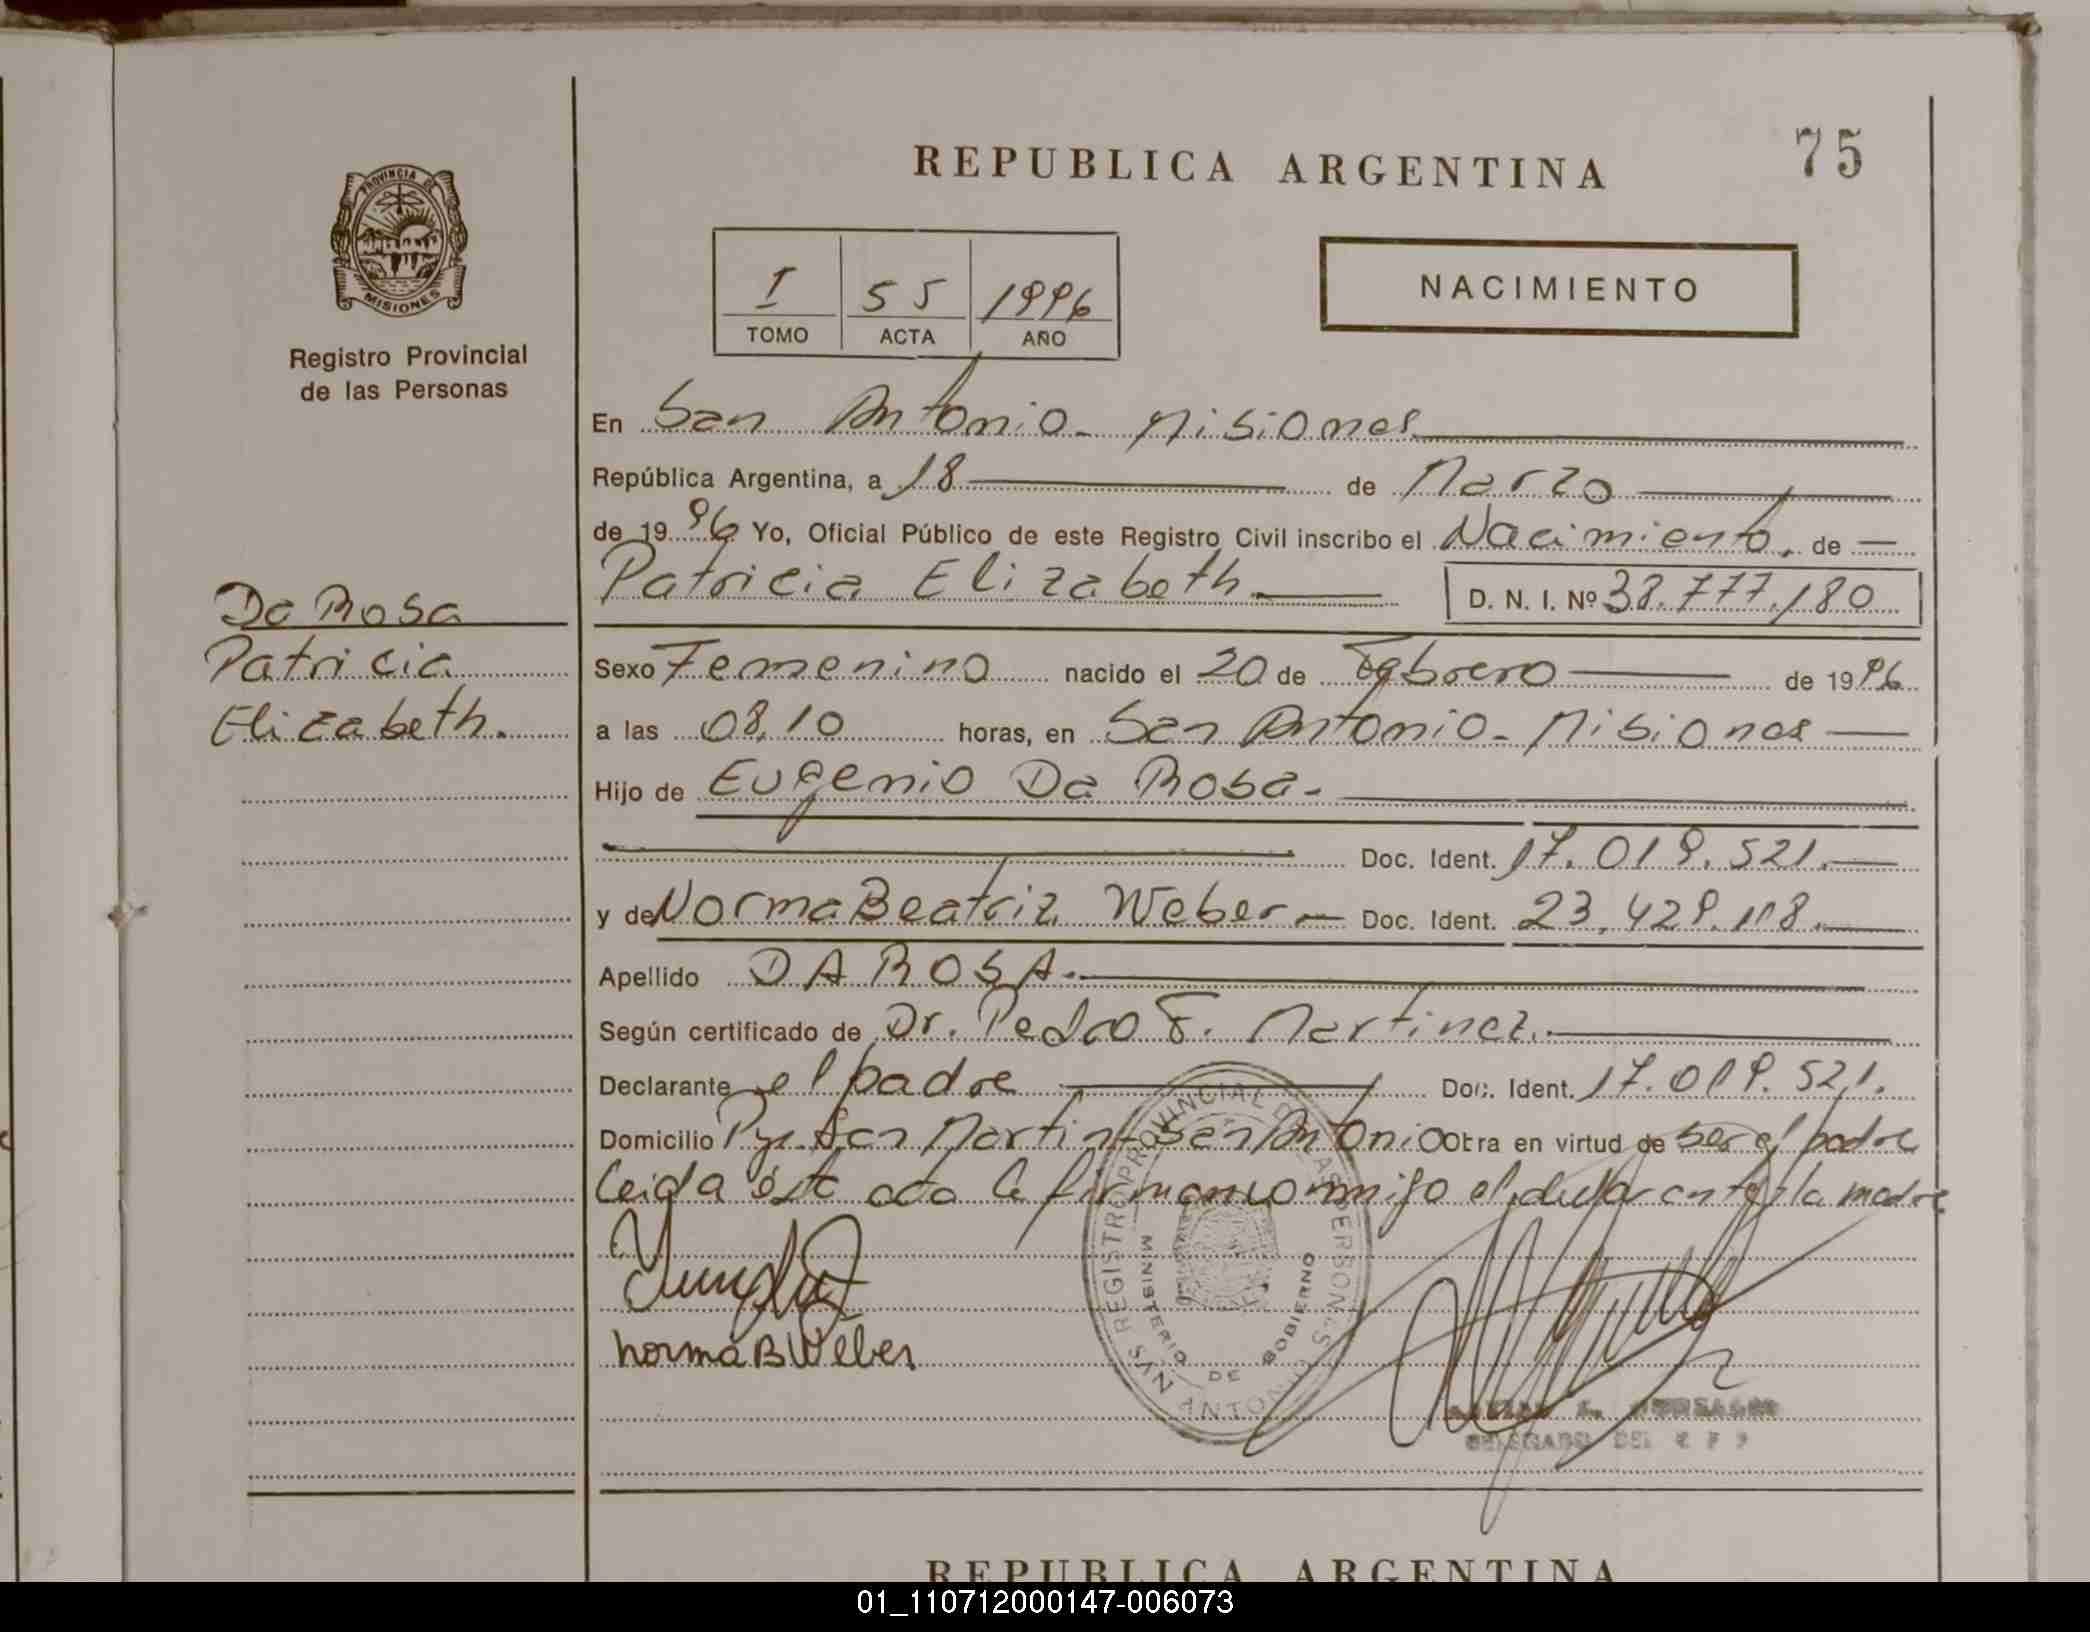 75
REPUBLICA ARGENTINA
PROVINCIA DE
MISIONES
Registro Provincial
de las Personas
I 55 1996
TOMO ACTA AÑO
NACIMIENTO
En San Antonio - Misiones
República Argentina, a 18 de Marzo
de 1996 Yo, Oficial Público de este Registro Civil inscribo el Nacimiento. de
Patricia Elizabeth. D. N. I. Nº 38.777.180
Da Rosa
Patricia
Elizabeth.
Sexo Femenino nacido el 20 de Febrero de 1996
a las 08,10 horas, en San Antonio - Misiones
Hijo de Eugenio Da Rosa.
Doc. Ident. 17.019.521.
y de Norma Beatriz Weber. Doc. Ident. 23.429.118.
Apellido DA ROSA.
Según certificado de Dr. Pedro F. Martinez.
Declarante el padre Doc. Ident. 17.019.521.
Domicilio Pje. San Martin - San Antonio Obra en virtud de ser el padre
Leida ésta acta la firman conmigo el declarante y la madre
Norma B Weber
REGISTRO PROVINCIAL DE LAS PERSONAS
MINISTERIO DE GOBIERNO
SAN ANTONIO
DELEGADO DEL R P P
REPUBLICA ARGENTINA
01_110712000147-006073